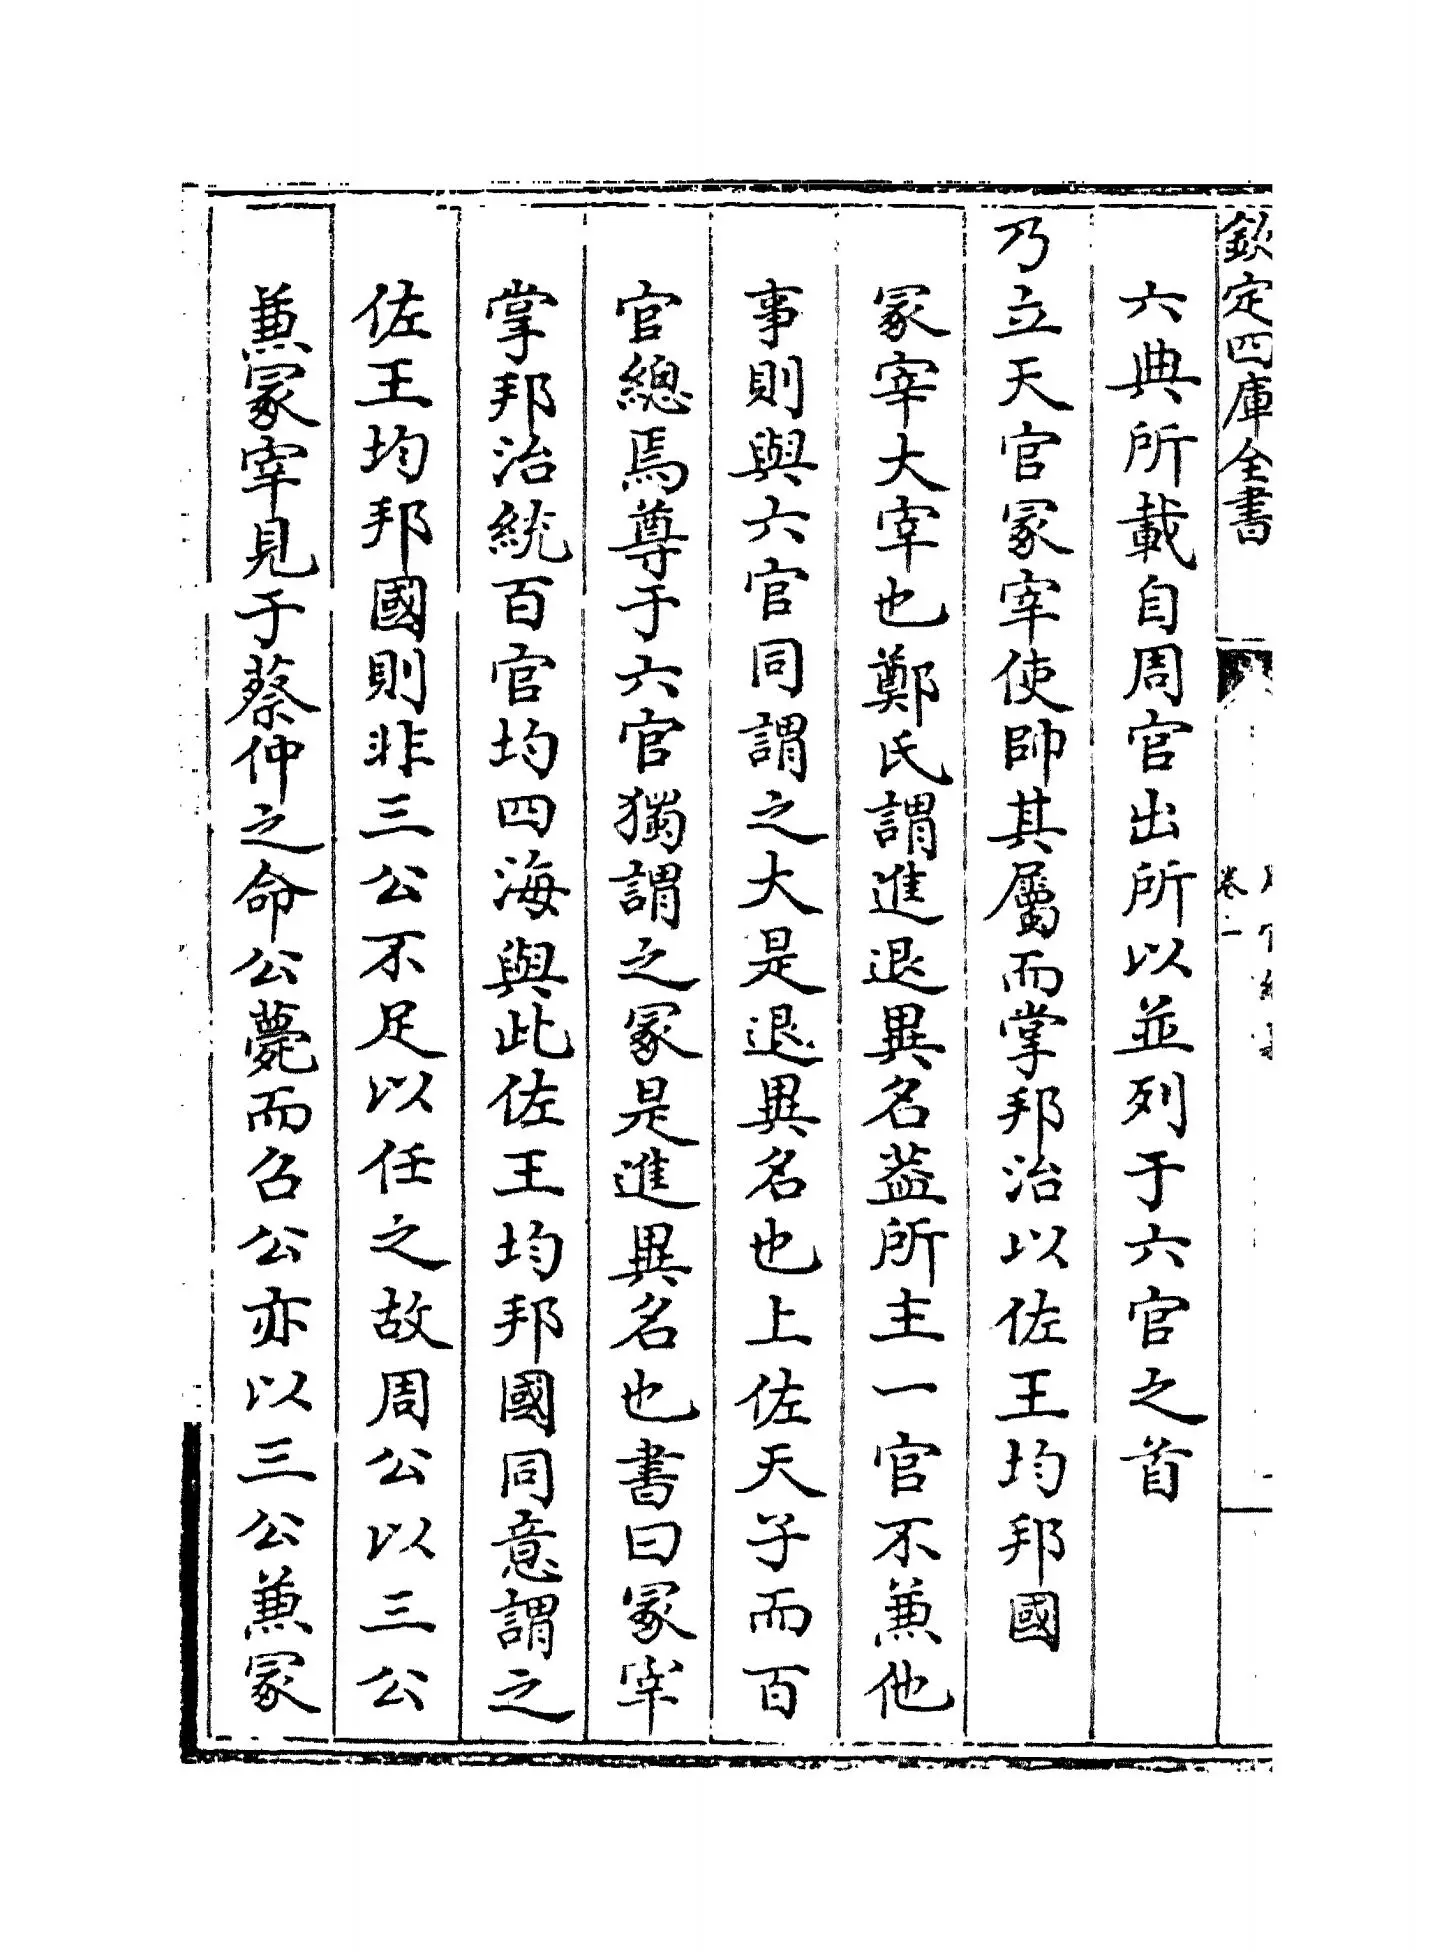 欽定四庫全書
卷一
六典所載自周官出所以並列于六官之首
乃立天官冡宰使帥其屬而掌邦治以佐王均邦國
冡宰大宰也鄭氏謂進退異名葢所主一官不兼他
事則與六官同謂之大是退異名也上佐天子而百
官總焉尊于六官獨謂之冡是進異名也書曰冡宰
掌邦治統百官均四海與此佐王均邦國同意謂之
佐王均邦國則非三公不足以任之故周公以三公
兼冡宰見于蔡仲之命公薨而召公亦以三公兼冡